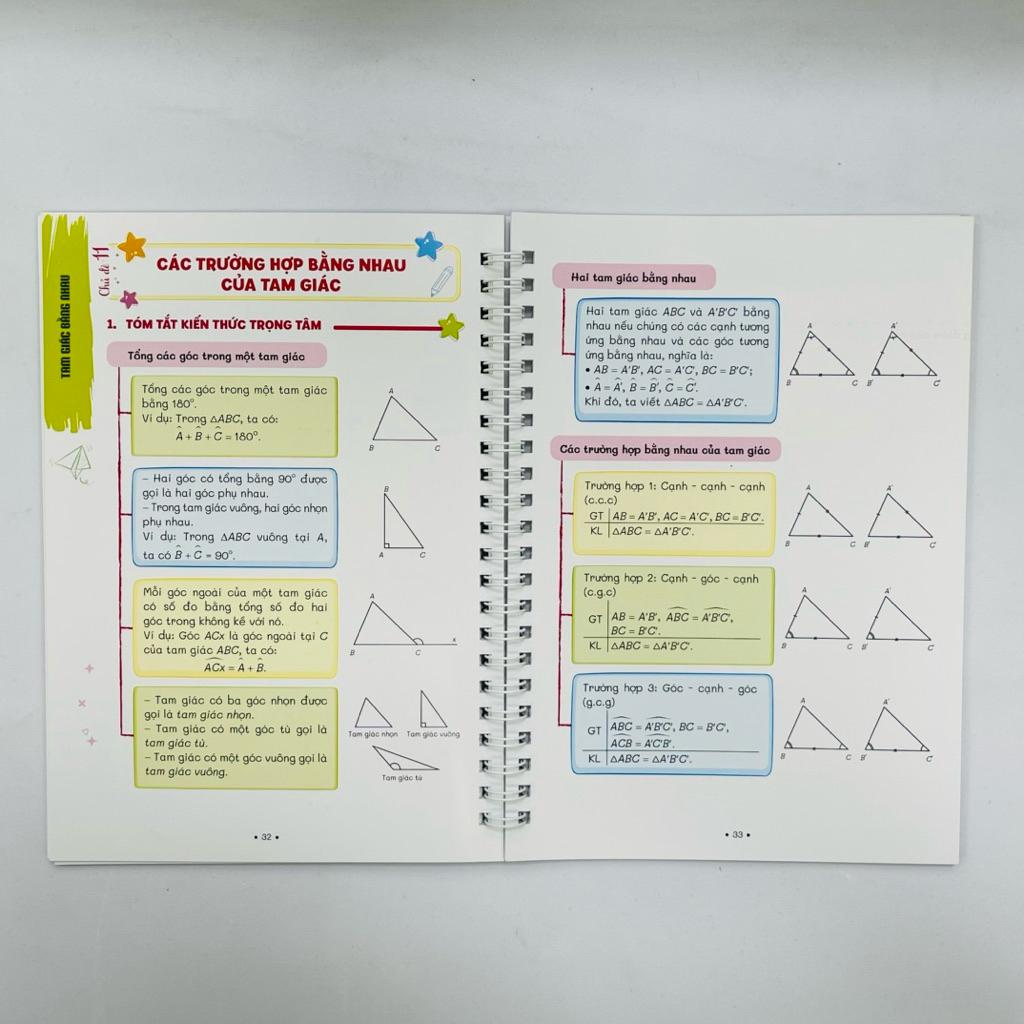 TAM GIÁC BẰNG NHAU
Chủ đề 11
CÁC TRƯỜNG HỢP BẰNG NHAU
CỦA TAM GIÁC
1. TÓM TẮT KIẾN THỨC TRỌNG TÂM
Tổng các góc trong một tam giác
Tổng các góc trong một tam giác
bằng 180°.
Ví dụ: Trong △ABC, ta có:
Â + B̂ + Ĉ = 180°.
A
B
C
– Hai góc có tổng bằng 90° được
gọi là hai góc phụ nhau.
– Trong tam giác vuông, hai góc nhọn
phụ nhau.
Ví dụ: Trong △ABC vuông tại A,
ta có B̂ + Ĉ = 90°.
B
A
C
Mỗi góc ngoài của một tam giác
có số đo bằng tổng số đo hai
góc trong không kề với nó.
Ví dụ: Góc ACx là góc ngoài tại C
của tam giác ABC, ta có:
ACx̂ = Â + B̂.
A
B
C
x
– Tam giác có ba góc nhọn được
gọi là tam giác nhọn.
– Tam giác có một góc tù gọi là
tam giác tù.
– Tam giác có một góc vuông gọi là
tam giác vuông.
Tam giác nhọn
Tam giác vuông
Tam giác tù
• 32 •
Hai tam giác bằng nhau
Hai tam giác ABC và A'B'C' bằng
nhau nếu chúng có các cạnh tương
ứng bằng nhau và các góc tương
ứng bằng nhau, nghĩa là:
• AB = A'B', AC = A'C', BC = B'C';
• Â = Â', B̂ = B̂', Ĉ = Ĉ'.
Khi đó, ta viết △ABC = △A'B'C'.
A
B
C
A'
B'
C'
Các trường hợp bằng nhau của tam giác
Trường hợp 1: Cạnh - cạnh - cạnh
(c.c.c)
GT AB = A'B', AC = A'C', BC = B'C'.
KL △ABC = △A'B'C'.
A
B
C
A'
B'
C'
Trường hợp 2: Cạnh - góc - cạnh
(c.g.c)
GT AB = A'B', ABĈ = A'B'Ĉ',
BC = B'C'.
KL △ABC = △A'B'C'.
A
B
C
A'
B'
C'
Trường hợp 3: Góc - cạnh - góc
(g.c.g)
GT ABĈ = A'B'Ĉ', BC = B'C',
ACB̂ = A'C'B̂'.
KL △ABC = △A'B'C'.
A
B
C
A'
B'
C'
• 33 •